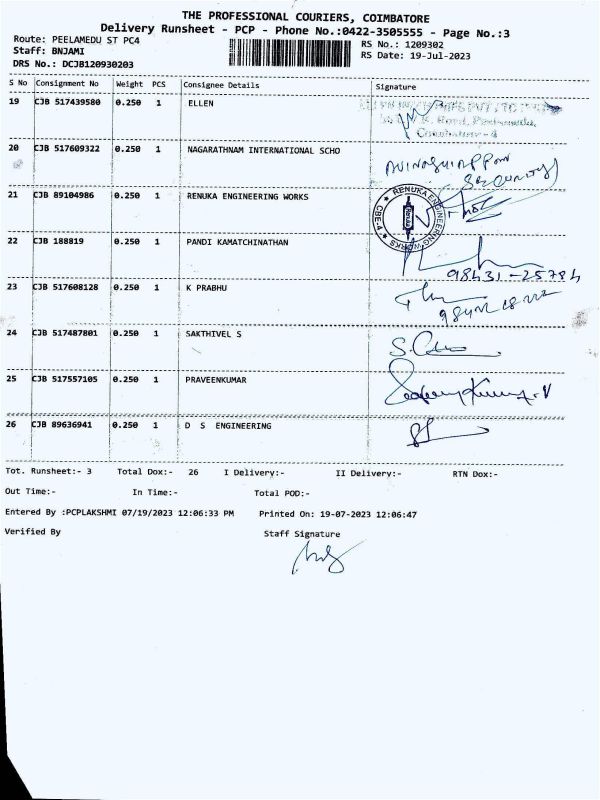 THE PROFESSIONAL COURIERS, COIMBATORE
Delivery Runsheet - PCP - Phone No.:0422-3505555 - Page No.:3
Route: PEELAMEDU ST PC4
RS No.: 1209302
Staff: BNJAMI
RS Date: 19-Jul-2023
DRS No.: DCJB120930203
S No Consignment No Weight PCS Consignee Details Signature
19 CJB 517439580 0.250 1 ELLEN
20 CJB 517609322 0.250 1 NAGARATHNAM INTERNATIONAL SCHO
21 CJB 89104986 0.250 1 RENUKA ENGINEERING WORKS
RENUKA ENGINEERING WORKS CBE-4 Renuka
22 CJB 188819 0.250 1 PANDI KAMATCHINATHAN
98431-25784
23 CJB 517608128 0.250 1 K PRABHU
24 CJB 517487801 0.250 1 SAKTHIVEL S
25 CJB 517557105 0.250 1 PRAVEENKUMAR
26 CJB 89636941 0.250 1 D S ENGINEERING
Tot. Runsheet:- 3 Total Dox:- 26 I Delivery:- II Delivery:- RTN Dox:-
Out Time:- In Time:- Total POD:-
Entered By :PCPLAKSHMI 07/19/2023 12:06:33 PM Printed On: 19-07-2023 12:06:47
Verified By Staff Signature